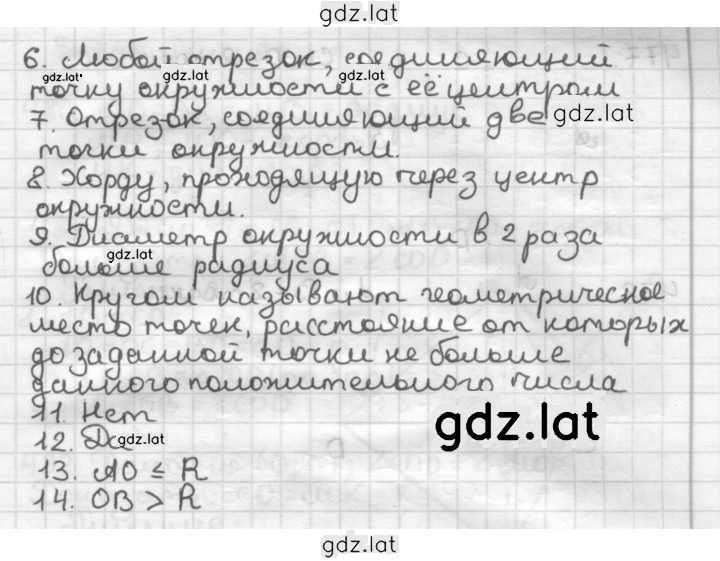 gdz.lat
6. Любой отрезок, соединяющий
gdz.lat gdz.lat gdz.lat
точку окружности с её центром
7. Отрезок, соединяющий две gdz.lat
точки окружности.
8. Хорду, проходящую через центр
окружности.
9. Диаметр окружности в 2 раза
gdz.lat
больше радиуса
10. Кругом называют геометрическое
место точек, расстояние от которых
до заданной точки не больше
данного положительного числа
11. Нет
gdz.lat
12. Да gdz.lat
13. AO ≤ R
14. OB > R
gdz.lat